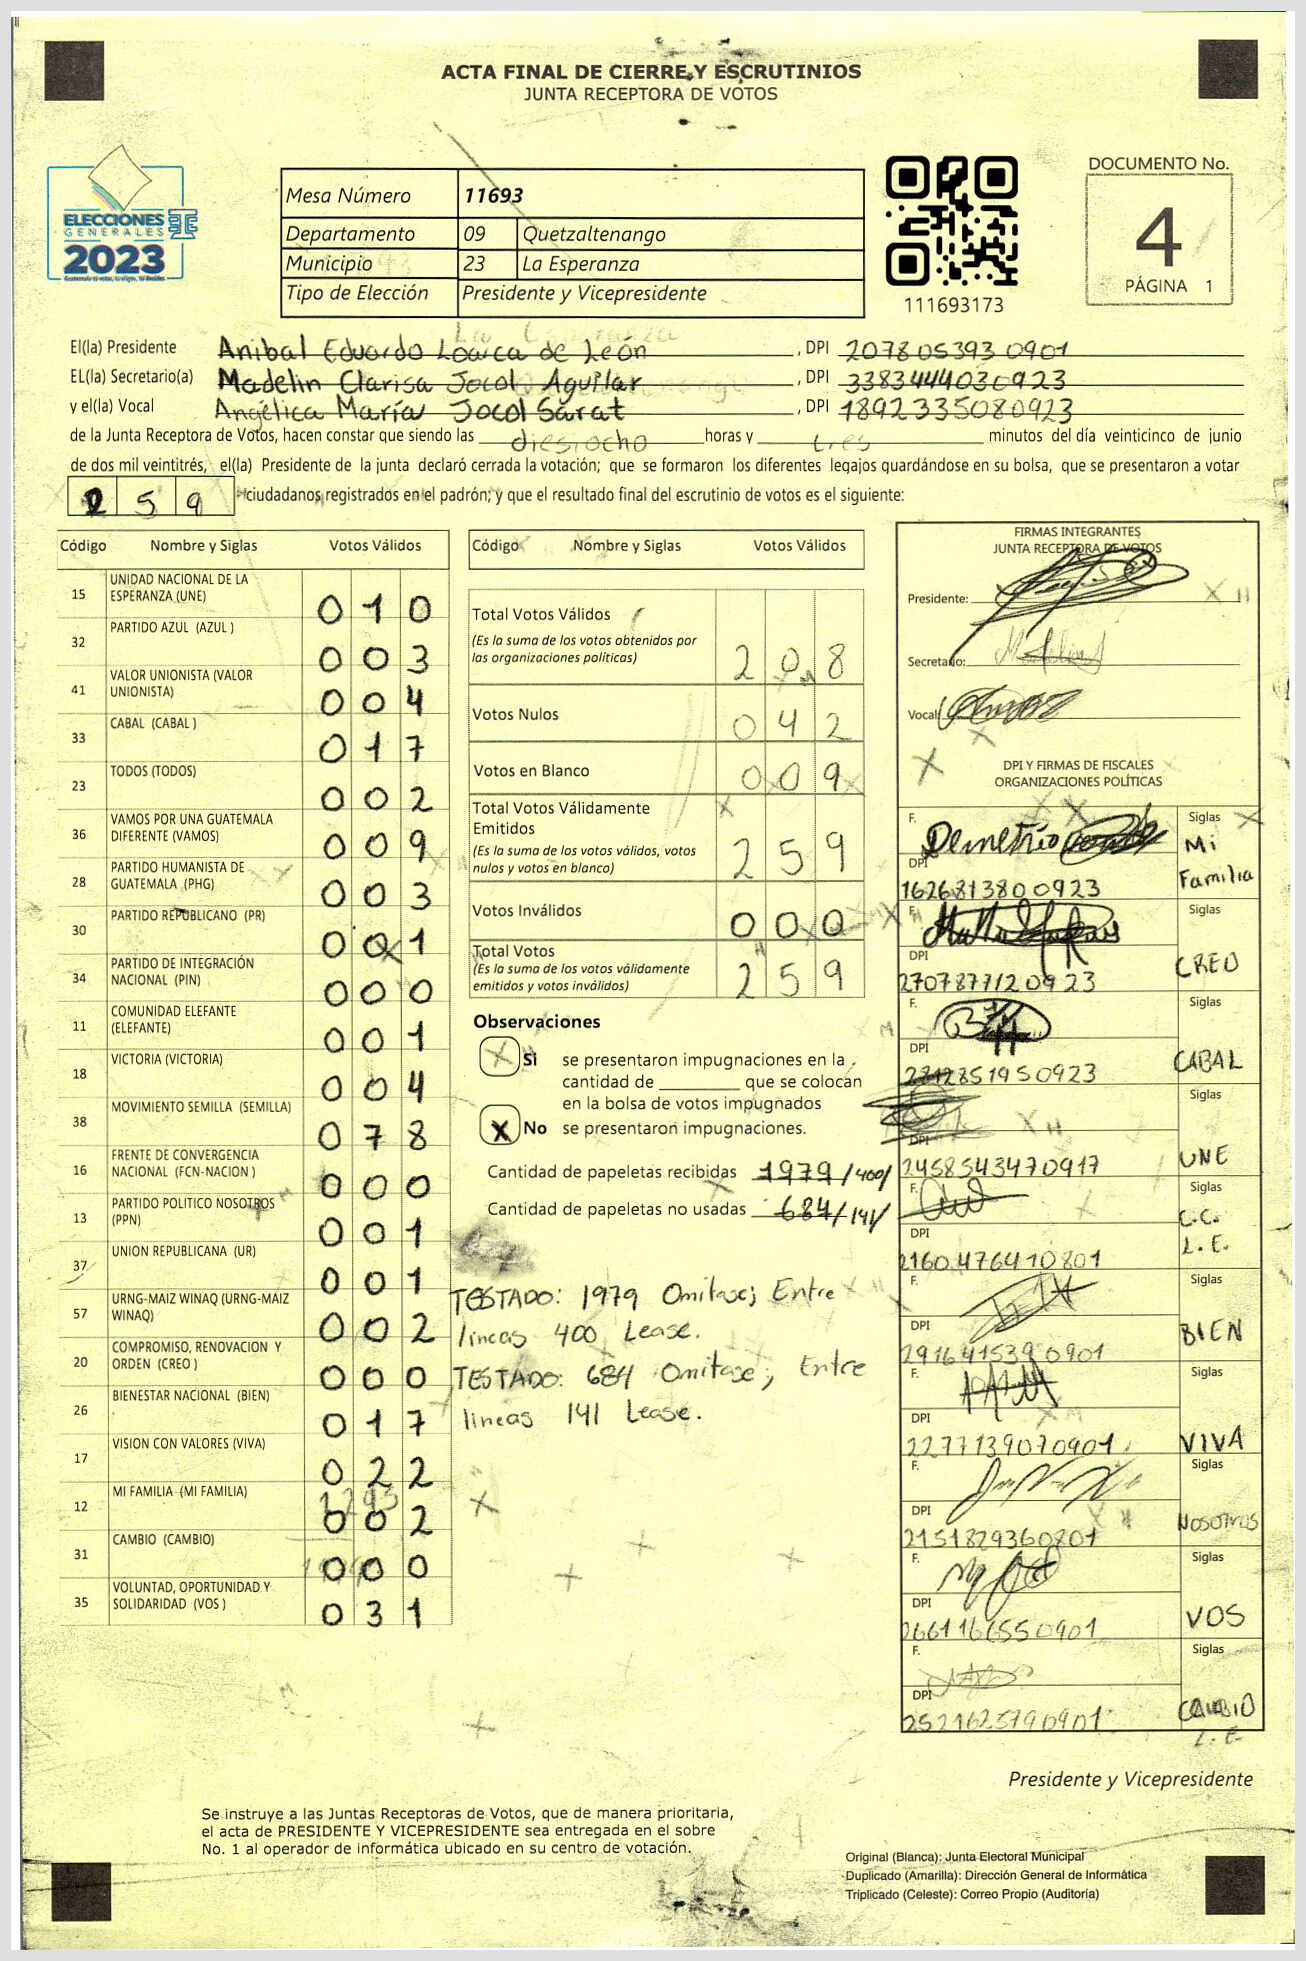 ACTA FINAL DE CIERRE Y ESCRUTINIOS
JUNTA RECEPTORA DE VOTOS
ELECCIONES
GENERALES
2023
Mesa Número 11693
Departamento 09 Quetzaltenango
Municipio 23 La Esperanza
Tipo de Elección Presidente y Vicepresidente
111693173
DOCUMENTO No.
4
PÁGINA 1
El(la) Presidente Anibal Eduardo Loarca de León, DPI 207805393 0901
EL(la) Secretario(a) Madelin Clarisa Jocol Aguilar, DPI 3383444030923
y el(la) Vocal Angélica María Jocol Sarat, DPI 1892335080923
de la Junta Receptora de Votos, hacen constar que siendo las diesiocho horas y tres minutos del día veinticinco de junio
de dos mil veintitrés, el(la) Presidente de la junta declaró cerrada la votación; que se formaron los diferentes legajos quardándose en su bolsa, que se presentaron a votar
259 ciudadanos registrados en el padrón; y que el resultado final del escrutinio de votos es el siguiente:
Código Nombre y Siglas Votos Válidos
15 UNIDAD NACIONAL DE LA ESPERANZA (UNE) 010
32 PARTIDO AZUL (AZUL ) 003
41 VALOR UNIONISTA (VALOR UNIONISTA) 004
33 CABAL (CABAL ) 017
23 TODOS (TODOS) 002
36 VAMOS POR UNA GUATEMALA DIFERENTE (VAMOS) 009
28 PARTIDO HUMANISTA DE GUATEMALA (PHG) 003
30 PARTIDO REPUBLICANO (PR) 001
34 PARTIDO DE INTEGRACIÓN NACIONAL (PIN) 000
11 COMUNIDAD ELEFANTE (ELEFANTE) 001
18 VICTORIA (VICTORIA) 004
38 MOVIMIENTO SEMILLA (SEMILLA) 078
16 FRENTE DE CONVERGENCIA NACIONAL (FCN-NACION ) 000
13 PARTIDO POLITICO NOSOTROS (PPN) 001
37 UNION REPUBLICANA (UR) 001
57 URNG-MAIZ WINAQ (URNG-MAIZ WINAQ) 002
20 COMPROMISO, RENOVACION Y ORDEN (CREO ) 000
26 BIENESTAR NACIONAL (BIEN) 017
17 VISION CON VALORES (VIVA) 022
12 MI FAMILIA (MI FAMILIA) 002
31 CAMBIO (CAMBIO) 000
35 VOLUNTAD, OPORTUNIDAD Y SOLIDARIDAD (VOS ) 031
Código Nombre y Siglas Votos Válidos
Total Votos Válidos 208
(Es la suma de los votos obtenidos por
las organizaciones políticas)
Votos Nulos 042
Votos en Blanco 009
Total Votos Válidamente
Emitidos 259
(Es la suma de los votos válidos, votos
nulos y votos en blanco)
Votos Inválidos 000
Total Votos 259
(Es la suma de los votos válidamente
emitidos y votos inválidos)
Observaciones
X Si se presentaron impugnaciones en la
cantidad de ________ que se colocan
en la bolsa de votos impugnados
X No se presentaron impugnaciones.
Cantidad de papeletas recibidas 1979/400/
Cantidad de papeletas no usadas 684/141/
TESTADO: 1979 Omitase; Entre
lineas 400 Lease.
TESTADO: 684 Omitase; Entre
lineas 141 Lease.
FIRMAS INTEGRANTES
JUNTA RECEPTORA DE VOTOS
Presidente:
Secretario:
Vocal:
DPI Y FIRMAS DE FISCALES
ORGANIZACIONES POLÍTICAS
F. Demetrio Siglas
DPI Mi
1626813800923 Familia
F. Siglas
DPI
2707877120923 CREO
F. Siglas
DPI
2812851950923 CABAL
Siglas
DPI
2458543470917 UNE
F. Siglas
DPI C.C.
2160476410801 L.E.
F. Siglas
DPI
2916415390901 BIEN
F. Siglas
DPI
2277139070901 VIVA
F. Siglas
DPI
2151829360801 Nosotros
F. Siglas
DPI
2661166550901 VOS
F. Siglas
DPI
2521625790901 CAMBIO
L.E.
Presidente y Vicepresidente
Se instruye a las Juntas Receptoras de Votos, que de manera prioritaria,
el acta de PRESIDENTE Y VICEPRESIDENTE sea entregada en el sobre
No. 1 al operador de informática ubicado en su centro de votación.
Original (Blanca): Junta Electoral Municipal
Duplicado (Amarilla): Dirección General de Informática
Triplicado (Celeste): Correo Propio (Auditoría)